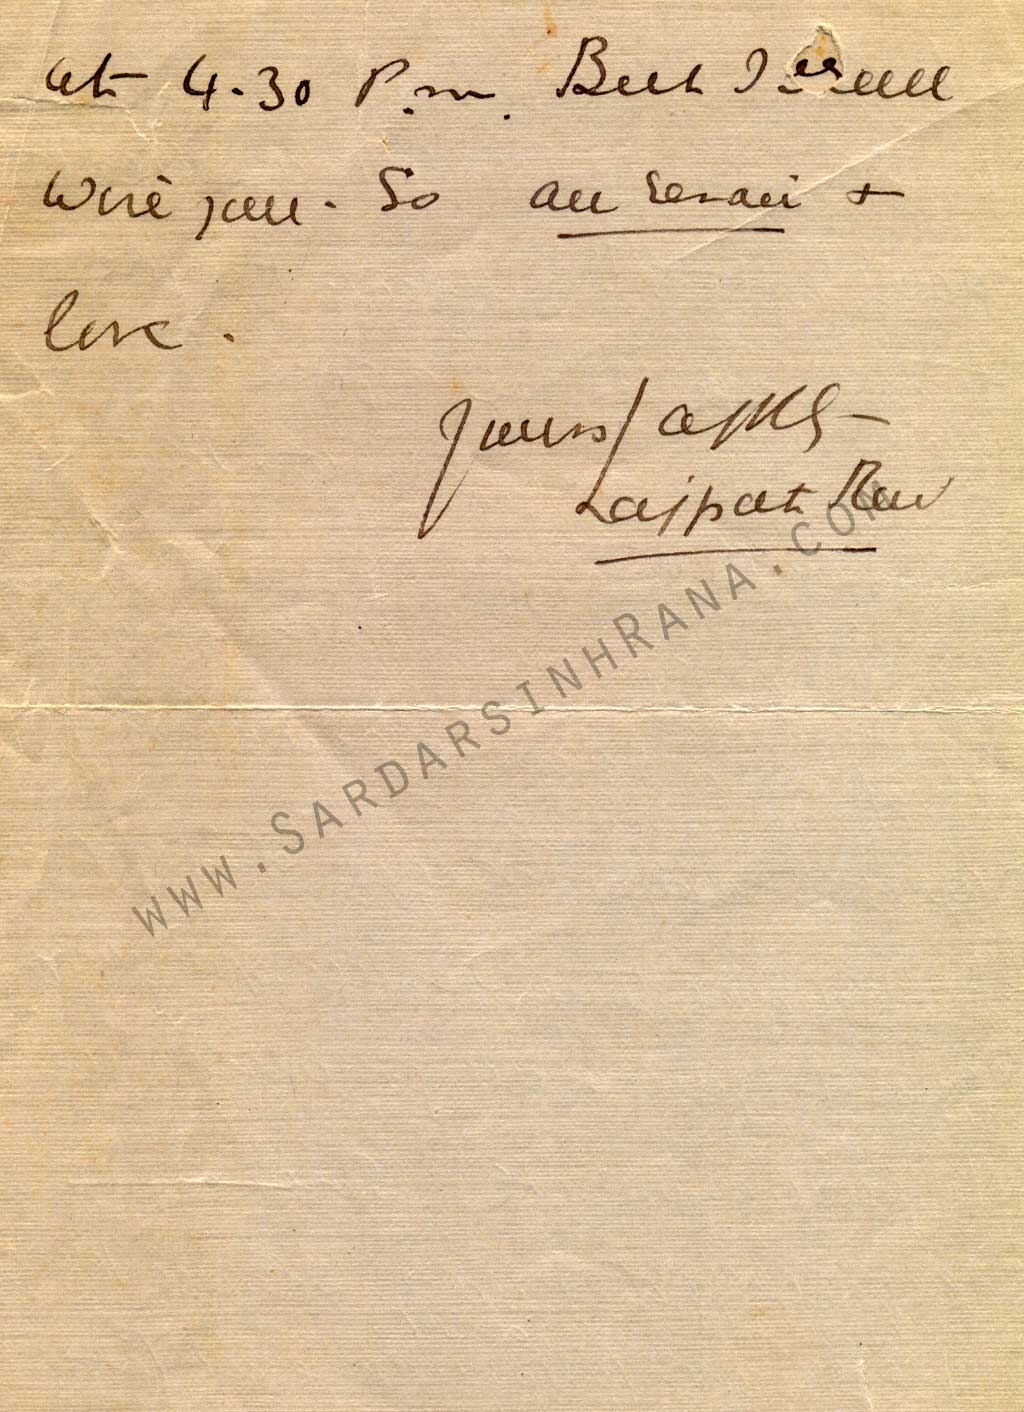 at 4.30 P.m. But I will
wire you. So au revoir +
love.
Yours faithfly
Lajpat Rai
www.SardarsinhRana.com